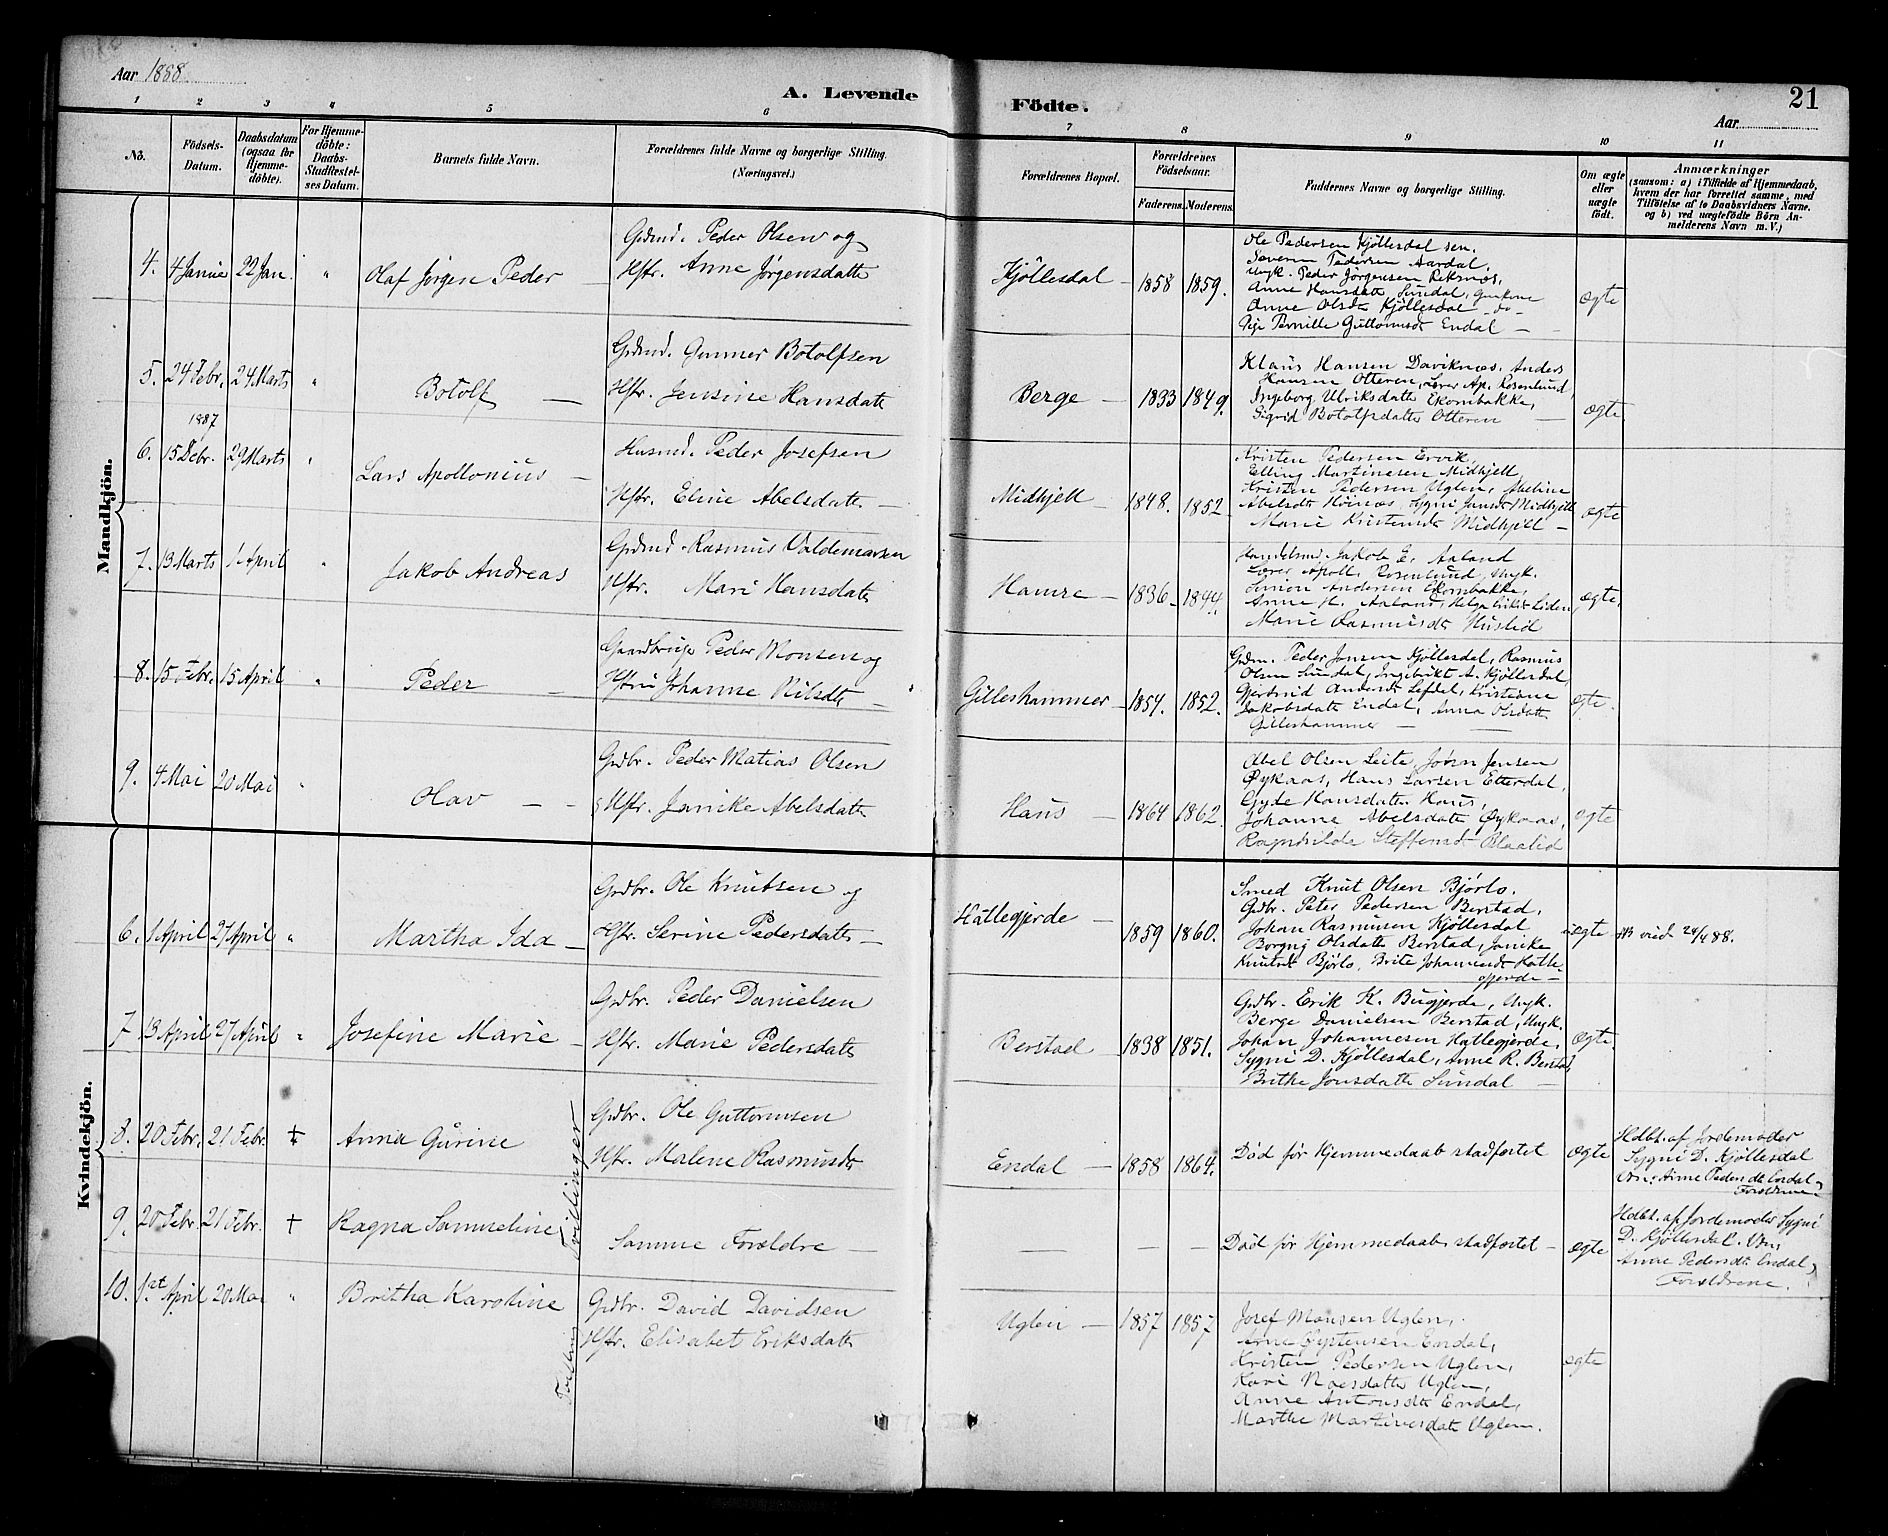 Aar 1888
A. Levende Födte.
21
Aar
1 2 3 4 5 6 7 8 9 10 11
No.
Födsels-Datum.
Daabsdatum (ogsaa for Hjemme-döbte).
For Hjemme-döbte: Daabs-Stadfæstel-ses Datum.
Barnets fulde Navn.
Forældrenes fulde Navne og borgerlige Stilling. (Næringsvei.)
Forældrenes Bopæl.
Forældrenes Födselsaar.
Faderens. Moderens.
Faddernes Navne og borgerlige Stilling.
Om ægte eller uægte födt.
Anmærkninger
(saasom: a) i Tilfælde af Hjemmedaab, hvem der har forrettet samme, med Tilföielse af to Daabsvidners Navne. og b) ved uægtefödte Börn An-melderens Navn m. V.)
Mandkjön.
4. 4 Januar 22 Jan. " Olaf Jørgen Peder
Grdmd. Peder Olsen og
Hstr. Anne Jørgensdattr
Kjöllesdal 1858 1859.
Ole Pedersen Kjöllesdal sen.
Severin Pedersen Aardal,
Ungk. Peder Jörgensen Reksnæs,
Anne Hansdattr Sundal, Gaardkone
Anne Olsdtr Kjöllesdal do
Pige Pernille Guttormsdtr Endal
ægte
5. 24 Febr. 24 Marts " Botolf
Grdmd. Gunner Botolfsen
Hstr. Jensine Hansdattr
Berge 1833 1849.
Klaus Hansen Daviknæs, Anders
Hansen Otteren, Lærer Ap. Rosenlund,
Ingeborg Ulriksdattr Ekornbakke,
Sigrid Botolfsdattr Otteren
ægte
1887
6. 15 Debr. 29 Marts " Lars Apollonius
Husmd. Peder Josefsen
Hstr. Eline Abelsdattr
Midhjell 1848. 1852
Kristen Pedersen Ervik,
Elling Martinesen Midhjell,
Kristen Pedersen Uglen, Abeline
Abelsdtr Höinæs, Sygni Jansdtr Midhjell
Marie Kristensdtr Midhjell
ægte
7. 13 Marts 1 April " Jakob Andreas
Grdmd. Rasmus Valdemarsen
Hstr. Mari Hansdattr
Hamre 1836 1844.
Handelsmd. Jakob E. Aaland
Lærer Apoll. Rosenlund, Ungk.
Simon Andersen Ekornbakke,
Anne H. Aaland, Helga Eriksdtr Liden,
Marie Rasmusdtr Hustid
ægte
8. 15 Febr. 15 April " Peder
Gaardbruger Peder Monsen og
Hstru Johanne Nilsdtr
Gilleshammer 1854. 1852.
Grdm. Peder Jonsen Kjöllesdal, Rasmus
Olsen Sundal, Ingebrikt A. Kjöllesdal,
Gjertrud Andersdtr Lefdal, Kristiane
Jakobsdattr Endal, Anna Olsdattr
Gilleshammer
ægte.
9. 4 Mai 20 Mai " Olav
Grdbr. Peder Matias Olsen
Hstr. Janike Abelsdattr
Haus 1864 1862.
Abel Olsen Leite, Jörn Jensen
Öykaas, Hans Larsen Etterdal,
Gyde Hansdattr Haus,
Johanne Abelsdattr Öykaas,
Ragnhilde Steffensdtr Blaalid
ægte
Kvindekjön.
6. 1 April 27 April " Martha Ida
Grdbr. Ole Knutsen og
Hstr. Serine Pedersdattr
Hattegjerde 1859 1860.
Smed Knut Olsen Bjørlo.
Grdbr. Peter Pedersen Berstad,
Johan Rasmusen Kjöllesdal
Borgny Olsdattr Berstad, Janike
Knutsdtr Bjørlo, Brite Johannesdtr Hatte-
gjerde
uægte
NB viede 24/4 88.
7 13 April 27 April " Josefine Marie
Grdbr. Peder Danielsen
Hstr. Marie Pedersdattr
Berstad 1838 1851.
Grdbr. Erik K. Bugjerde, Ungk.
Berge Danielsen Berstad, Ungk.
Johan Johannesen Hattegjerde,
Sygni D. Kjöllesdal, Anne R. Berstad,
Brithe Jonsdattr Sundal
ægte.
8. 20 Febr. 21 Febr. + Anna Gurine
Tvillinger
Grdbr. Ole Guttormsen
Hstr. Malene Rasmusdtr
Endal 1858 1864.
Död för Hjemmedaab stadfæstet
ægte
Hdbt. af Jordemoder
Sygni D. Kjöllesdal
Vdn. Anne Pedersdtr Endal,
Forældrene
9. 20 Febr. 21 Febr. + Ragna Sammeline
Samme Forældre
Död för Hjemmedaab stadfæstet
ægte
Hdbt. af Jordemoder Sygni
D. Kjöllesdal. Vdn.
Anne Pedersdtr Endal,
Forældrene.
10. 1st April 20 Mai " Britha Karoline
Grdbr. David Davidsen
Hstr. Elisabet Eriksdattr
Uglen 1857 1857
Josef Monsen Uglen,
Arne Öystensen Endal,
Kristen Pedersen Uglen,
Kari Noesdattr Uglen,
Anne Antonsdtr Endal,
Marthe Martinesdattr Uglen.
ægte